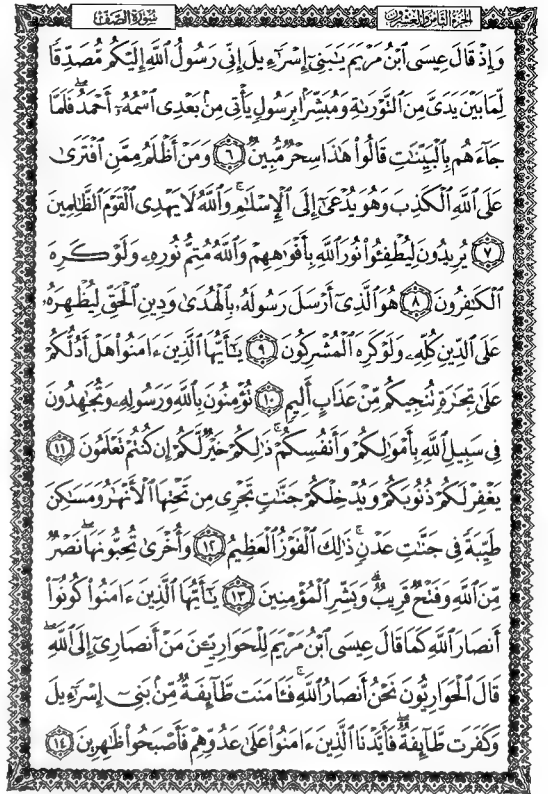 سُورَةُ الصَّفّ
الجُزْءُ الثَّامِنُ وَالعِشْرُونَ
وَإِذْ قَالَ عِيسَى ٱبْنُ مَرْيَمَ يَٰبَنِىٓ إِسْرَٰٓءِيلَ إِنِّى رَسُولُ ٱللَّهِ إِلَيْكُم مُّصَدِّقًا
لِّمَا بَيْنَ يَدَىَّ مِنَ ٱلتَّوْرَىٰةِ وَمُبَشِّرًۢا بِرَسُولٍ يَأْتِى مِنۢ بَعْدِى ٱسْمُهُۥٓ أَحْمَدُۖ فَلَمَّا
جَآءَهُم بِٱلْبَيِّنَٰتِ قَالُوا۟ هَٰذَا سِحْرٌ مُّبِينٌ ﴿٦﴾ وَمَنْ أَظْلَمُ مِمَّنِ ٱفْتَرَىٰ
عَلَى ٱللَّهِ ٱلْكَذِبَ وَهُوَ يُدْعَىٰٓ إِلَى ٱلْإِسْلَٰمِۚ وَٱللَّهُ لَا يَهْدِى ٱلْقَوْمَ ٱلظَّٰلِمِينَ
﴿٧﴾ يُرِيدُونَ لِيُطْفِـُٔوا۟ نُورَ ٱللَّهِ بِأَفْوَٰهِهِمْ وَٱللَّهُ مُتِمُّ نُورِهِۦ وَلَوْ كَرِهَ
ٱلْكَٰفِرُونَ ﴿٨﴾ هُوَ ٱلَّذِىٓ أَرْسَلَ رَسُولَهُۥ بِٱلْهُدَىٰ وَدِينِ ٱلْحَقِّ لِيُظْهِرَهُۥ
عَلَى ٱلدِّينِ كُلِّهِۦ وَلَوْ كَرِهَ ٱلْمُشْرِكُونَ ﴿٩﴾ يَٰٓأَيُّهَا ٱلَّذِينَ ءَامَنُوا۟ هَلْ أَدُلُّكُمْ
عَلَىٰ تِجَٰرَةٍ تُنجِيكُم مِّنْ عَذَابٍ أَلِيمٍ ﴿١٠﴾ تُؤْمِنُونَ بِٱللَّهِ وَرَسُولِهِۦ وَتُجَٰهِدُونَ
فِى سَبِيلِ ٱللَّهِ بِأَمْوَٰلِكُمْ وَأَنفُسِكُمْۚ ذَٰلِكُمْ خَيْرٌ لَّكُمْ إِن كُنتُمْ تَعْلَمُونَ ﴿١١﴾
يَغْفِرْ لَكُمْ ذُنُوبَكُمْ وَيُدْخِلْكُمْ جَنَّٰتٍ تَجْرِى مِن تَحْتِهَا ٱلْأَنْهَٰرُ وَمَسَٰكِنَ
طَيِّبَةً فِى جَنَّٰتِ عَدْنٍۚ ذَٰلِكَ ٱلْفَوْزُ ٱلْعَظِيمُ ﴿١٢﴾ وَأُخْرَىٰ تُحِبُّونَهَاۖ نَصْرٌ
مِّنَ ٱللَّهِ وَفَتْحٌ قَرِيبٌۗ وَبَشِّرِ ٱلْمُؤْمِنِينَ ﴿١٣﴾ يَٰٓأَيُّهَا ٱلَّذِينَ ءَامَنُوا۟ كُونُوٓا۟
أَنصَارَ ٱللَّهِ كَمَا قَالَ عِيسَى ٱبْنُ مَرْيَمَ لِلْحَوَارِيِّـۧنَ مَنْ أَنصَارِىٓ إِلَى ٱللَّهِۖ
قَالَ ٱلْحَوَارِيُّونَ نَحْنُ أَنصَارُ ٱللَّهِۖ فَـَٔامَنَت طَّآئِفَةٌ مِّنۢ بَنِىٓ إِسْرَٰٓءِيلَ
وَكَفَرَت طَّآئِفَةٌۖ فَأَيَّدْنَا ٱلَّذِينَ ءَامَنُوا۟ عَلَىٰ عَدُوِّهِمْ فَأَصْبَحُوا۟ ظَٰهِرِينَ ﴿١٤﴾